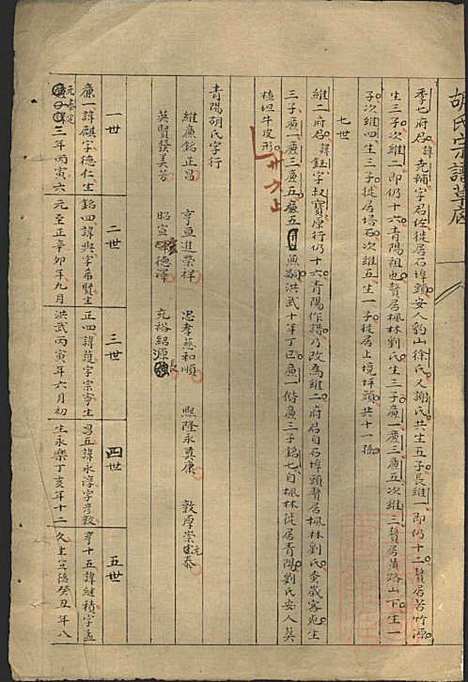 胡氏宗譜草底
季七府君諱堯輔字君佐徙居石埠頭安人豹山徐氏又謝氏共生五子長維一即仍十二贅居苦竹源
生三子次維二即仍十六青陽祖也贅居楓林劉氏生三子廉一廉三廉五次維三贅居黃路山下生一
子次維四生三子徙居塔石次維五生一子徙居上境坪頭共十一孫
七世
維二府君諱鈺字叔寶原行仍十六青陽作譜乃改為維二府君自石埠頭贅居楓林劉氏
三子廉一廉三廉五廉五 洪武十年丁巳廉一偕廉三子銘七自楓林徙居青陽劉氏安人葬
植坦牛皮形
青陽胡氏字行
維廉銘正昌 亨重進榮祥 忠孝慈和順 興隆永真康 敦厚崇元泰
英賢發美芳 昭宣 德澤 克裕紹源長
一世 二世 三世 四世 五世
廉一諱麒字德仁生 銘四諱興字希賢生 正四諱 字宗寧生 昌五諱永淳字彥敦 亨十五諱繼積字孟
元泰定三年丙寅六 元至正辛卯年九月 洪武丙寅年六月初 生永樂丁亥年十二 久生宣德癸丑年八